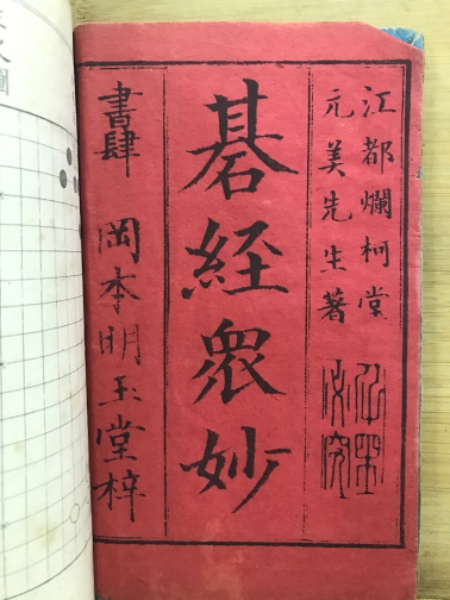 江都爛柯堂
元美先生著
碁経衆妙
書肆 岡本明玉堂梓